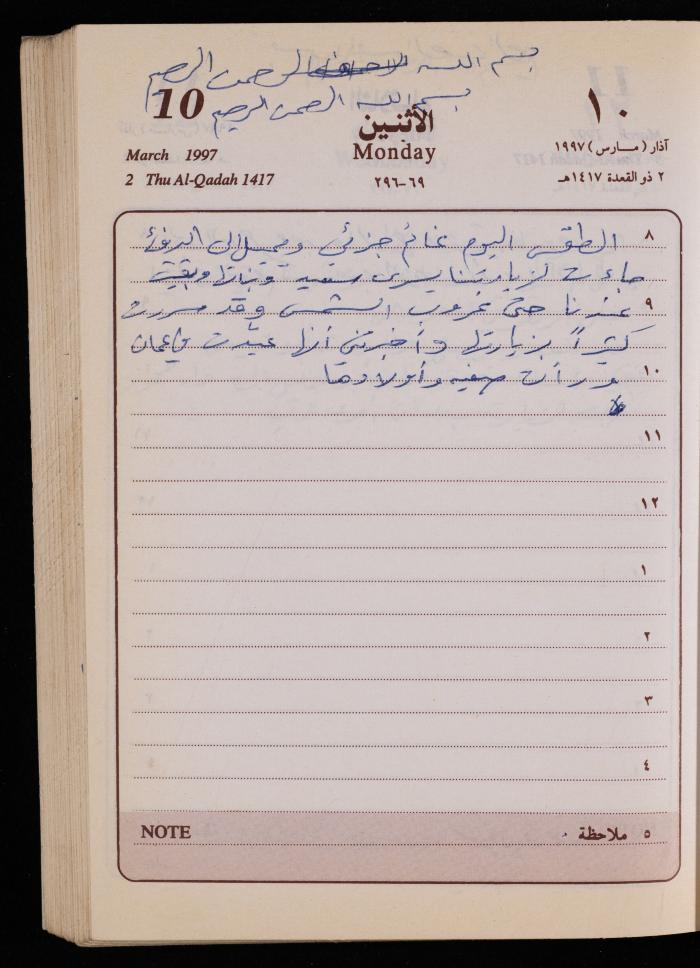 بسم الله الرحمن الرحيم
بسم الله الرحمن الرحيم
10
الأثنين
١٠
March 1997
Monday
آذار (مارس) ١٩٩٧
2 Thu Al-Qadah 1417
٦٩-٢٩٦
٢ ذو القعدة ١٤١٧هـ
٨
الطقس اليوم غائم جزئي ويميل الى الدفئ
جاءت لزيارتنا يسرى سعيد وبناتها وبقيت
٩
عندنا حتى غروب الشمس وقد سررت
كثيراً بزيارتها وأخبرتني أنها عيدت في عمان
١٠
ورأت صفيه وأولادها
١١
١٢
١
٢
٣
٤
NOTE
٥ ملاحظة